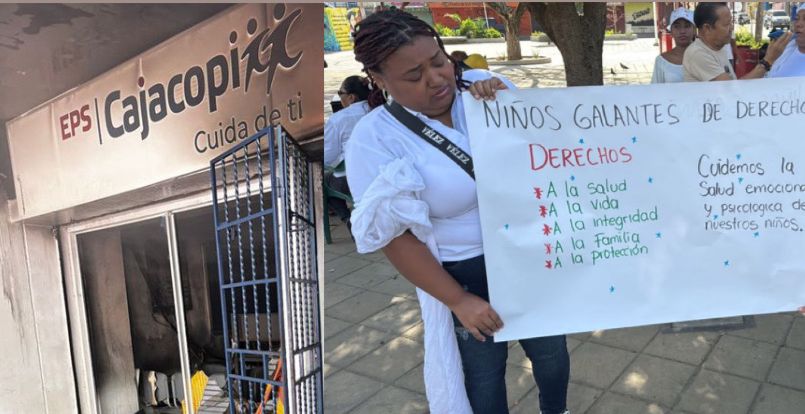 EPS Cajacopi
Cuida de ti
VÉLEZ VÉLEZ
NIÑOS GALANTES DE DERECHO
DERECHOS
* A la salud
* A la vida
* A la integridad
* A la Familia
* A la protección
Cuidemos la
Salud emociona
y psicologica de
nuestros niños.